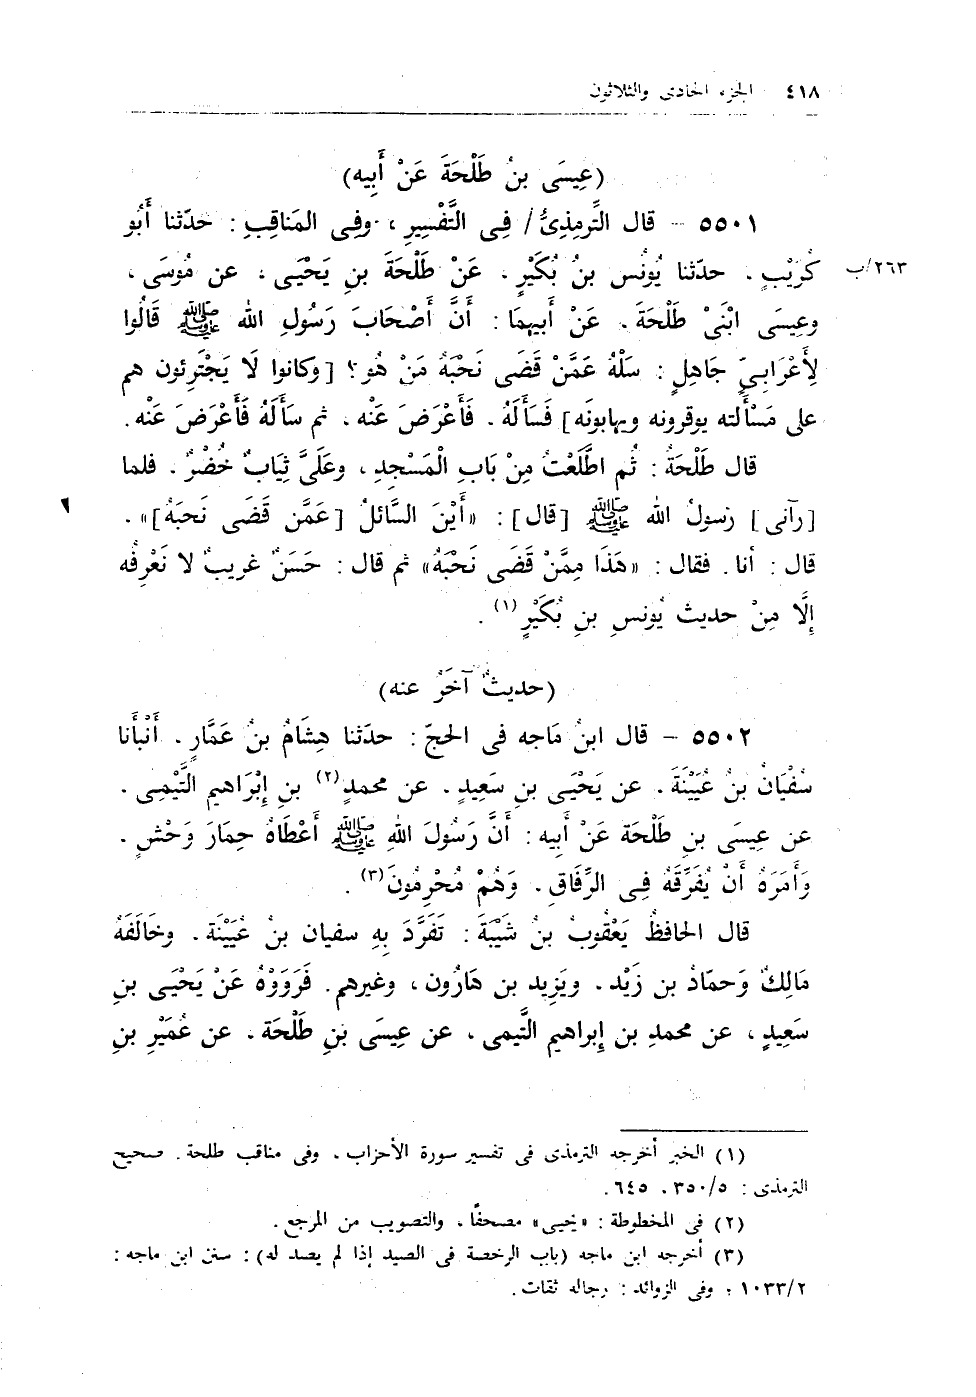 ٤١٨ الجزء الحادى والثلاثون
(عِيسَى بنُ طَلْحَةَ عَنْ أَبِيه)
٥٥٠١ – قال التِّرمِذِىُّ / فِى التَّفْسِيرِ ، وفِى المَناقِبِ : حَدّثنا أَبُو
كُرَيْبٍ ، حدّثنا يُونُس بنُ بُكَيْرٍ ، عَنْ طَلْحَةَ بنِ يَحْيَى ، عن مُوسَى ،
٢٦٣/ب
وعِيسَى ابْنَىْ طَلْحَةَ ، عَنْ أَبيهِمَا : أَنَّ أَصْحَابَ رَسُولِ الله ﷺ قَالُوا
لِأَعْرَابِىٍّ جَاهِلٍ : سَلْهُ عَمَّنْ قَضَى نَحْبَهُ مَنْ هُو؟ [وكانوا لَا يَجْتَرِئون هم
على مَسْأَلته يوقرونه ويهابونَه] فَسَأَلَهُ ، فَأَعْرَضَ عَنْه ، ثم سَأَلَهُ فَأَعْرَضَ عَنْه .
قال طَلْحَةُ : ثُم اطَّلَعْتُ مِنْ بَابِ الْمَسْجِدِ ، وعَلَىَّ ثِيَابٌ خُضْرٌ ، فلما
[رآنى] رَسولُ الله ﷺ [قال] : «أَيْنَ السَّائلُ [عَمَّن قَضَى نَحبَهُ]» .
قال : أنا . فقال : «هَذَا مِمَّنْ قَضَى نَحْبَهُ» ثم قال : حَسَنٌ غريبٌ لا نَعْرِفُه
إِلَّا مِنْ حديث يُونسِ بنِ بُكَيْرٍ(١) .
(حديثٌ آخَرُ عنه)
٥٥٠٢ – قال ابنُ مَاجه فى الحجّ : حدّثنا هِشَامُ بنُ عَمَّارٍ ، أَنْبأَنا
سُفْيَانُ بنُ عُيَيْنَةَ ، عن يَحْيَى بنِ سَعِيدٍ ، عن محمدٍ(٢) بنِ إِبْرَاهيم التَّيْمِى ،
عن عِيسَى بنِ طَلْحَة عَنْ أَبيه : أَنَّ رَسُولَ اللهِ ﷺ أَعْطَاهُ حِمَارَ وَحْشٍ ،
وَأَمَرَهُ أَنْ يُفَرِّقَهُ فِى الرِّفَاقِ ، وَهُمْ مُحْرِمُونَ(٣) .
قال الحافظُ يَعْقُوبُ بنُ شَيْبَةَ : تَفَرَّدَ بِهِ سفيان بنُ عُيَيْنَة ، وخَالَفَهُ
مَالِكٌ وَحمَّادُ بن زَيْد ، ويَزِيد بن هَارُون ، وغيرهم . فَرَوَوْهُ عَنْ يَحْيَى بنِ
سَعِيدٍ ، عن محمدِ بن إِبراهيم التَّيمى ، عن عِيسَى بْنِ طَلْحَة ، عن عُمَيْرِ بنِ
(١) الخبر أخرجه الترمذى فى تفسير سورة الأحزاب ، وفى مناقب طلحة . صحيح
الترمذى : ٣٥٠/٥ ، ٦٤٥ .
(٢) فى المخطوطة : «يحيى» مصحفًا ، والتصويب من المرجع .
(٣) أخرجه ابن ماجه (باب الرخصة فى الصيد إذا لم يصد له) : سنن ابن ماجه :
١٠٣٣/٢ ؛ وفى الزوائد : رجاله ثقات .